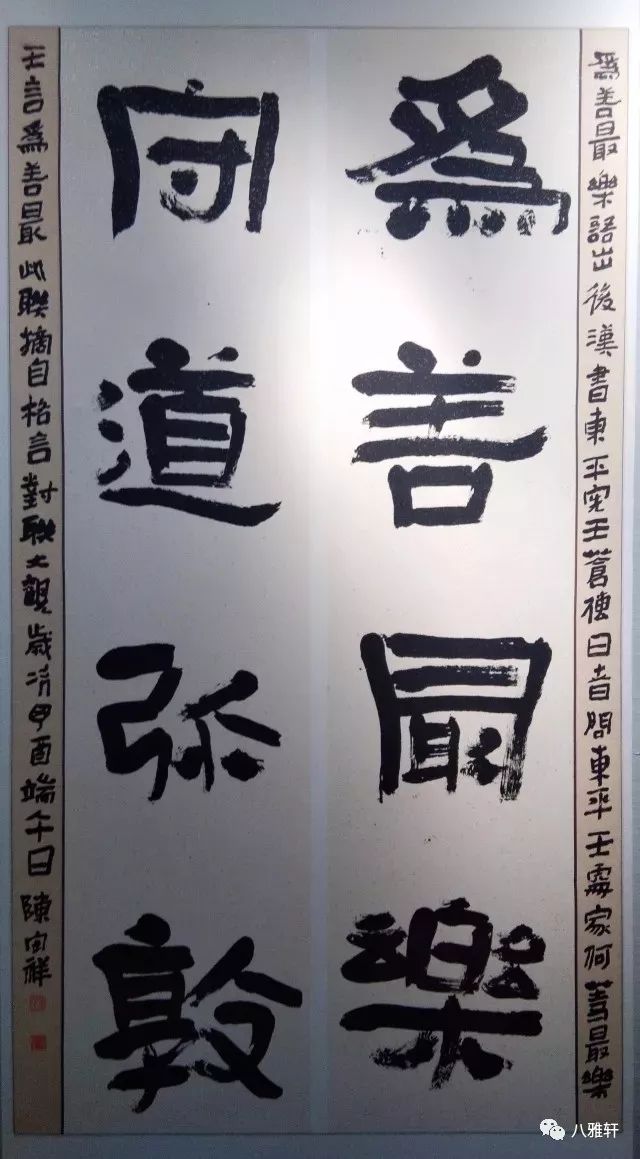 爲善最樂語出後漢書東平宪王蒼傳日者問東平王處家何等最樂
爲善最樂
守道弥敦
王言爲善最此聯摘自格言對联大觀歲次酉端午日陳祥
八雅轩